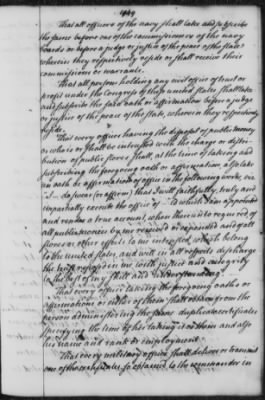 1449
That all officers of the navy shall take and subscribe
the same before one of the commissioners of the navy
boards or before a judge or justice of the peace of the state
wherein they respectively reside or shall receive their
commissions or warrants.
That all persons holding any civil office of trust or
profit under the Congress of these united states shall take
and subscribe the said oath or affirmation before a judge
or justice of the peace of the state, wherein they respectively
reside.
That every officer having the disposal of public money
or who is or shall be entrusted with the charge or distri-
bution of public stores shall, at the time of taking and
subscribing the foregoing oath or affirmation, also take
an oath or affirmation of office in the following words, viz
I do swear (or affirm) that I will faithfully, truly and
impartially execute the office of to which I am appointed
and render a true account, when thereunto required of
all public monies by me received or expended and of all
stores or other effects to me intrusted, which belong
to the united states, and will in all respects discharge
the trust reposed in me with justice and integrity
to the best of my skill and understanding.
That every officer taking the foregoing oaths or
affirmations or either of them shall obtain from the
person administering the same duplicate certificates
specifying the time of his taking it or them and also
his name and rank or employment.
That every military officer shall deliver or transmit
one of the certificates, so obtained to the commander in